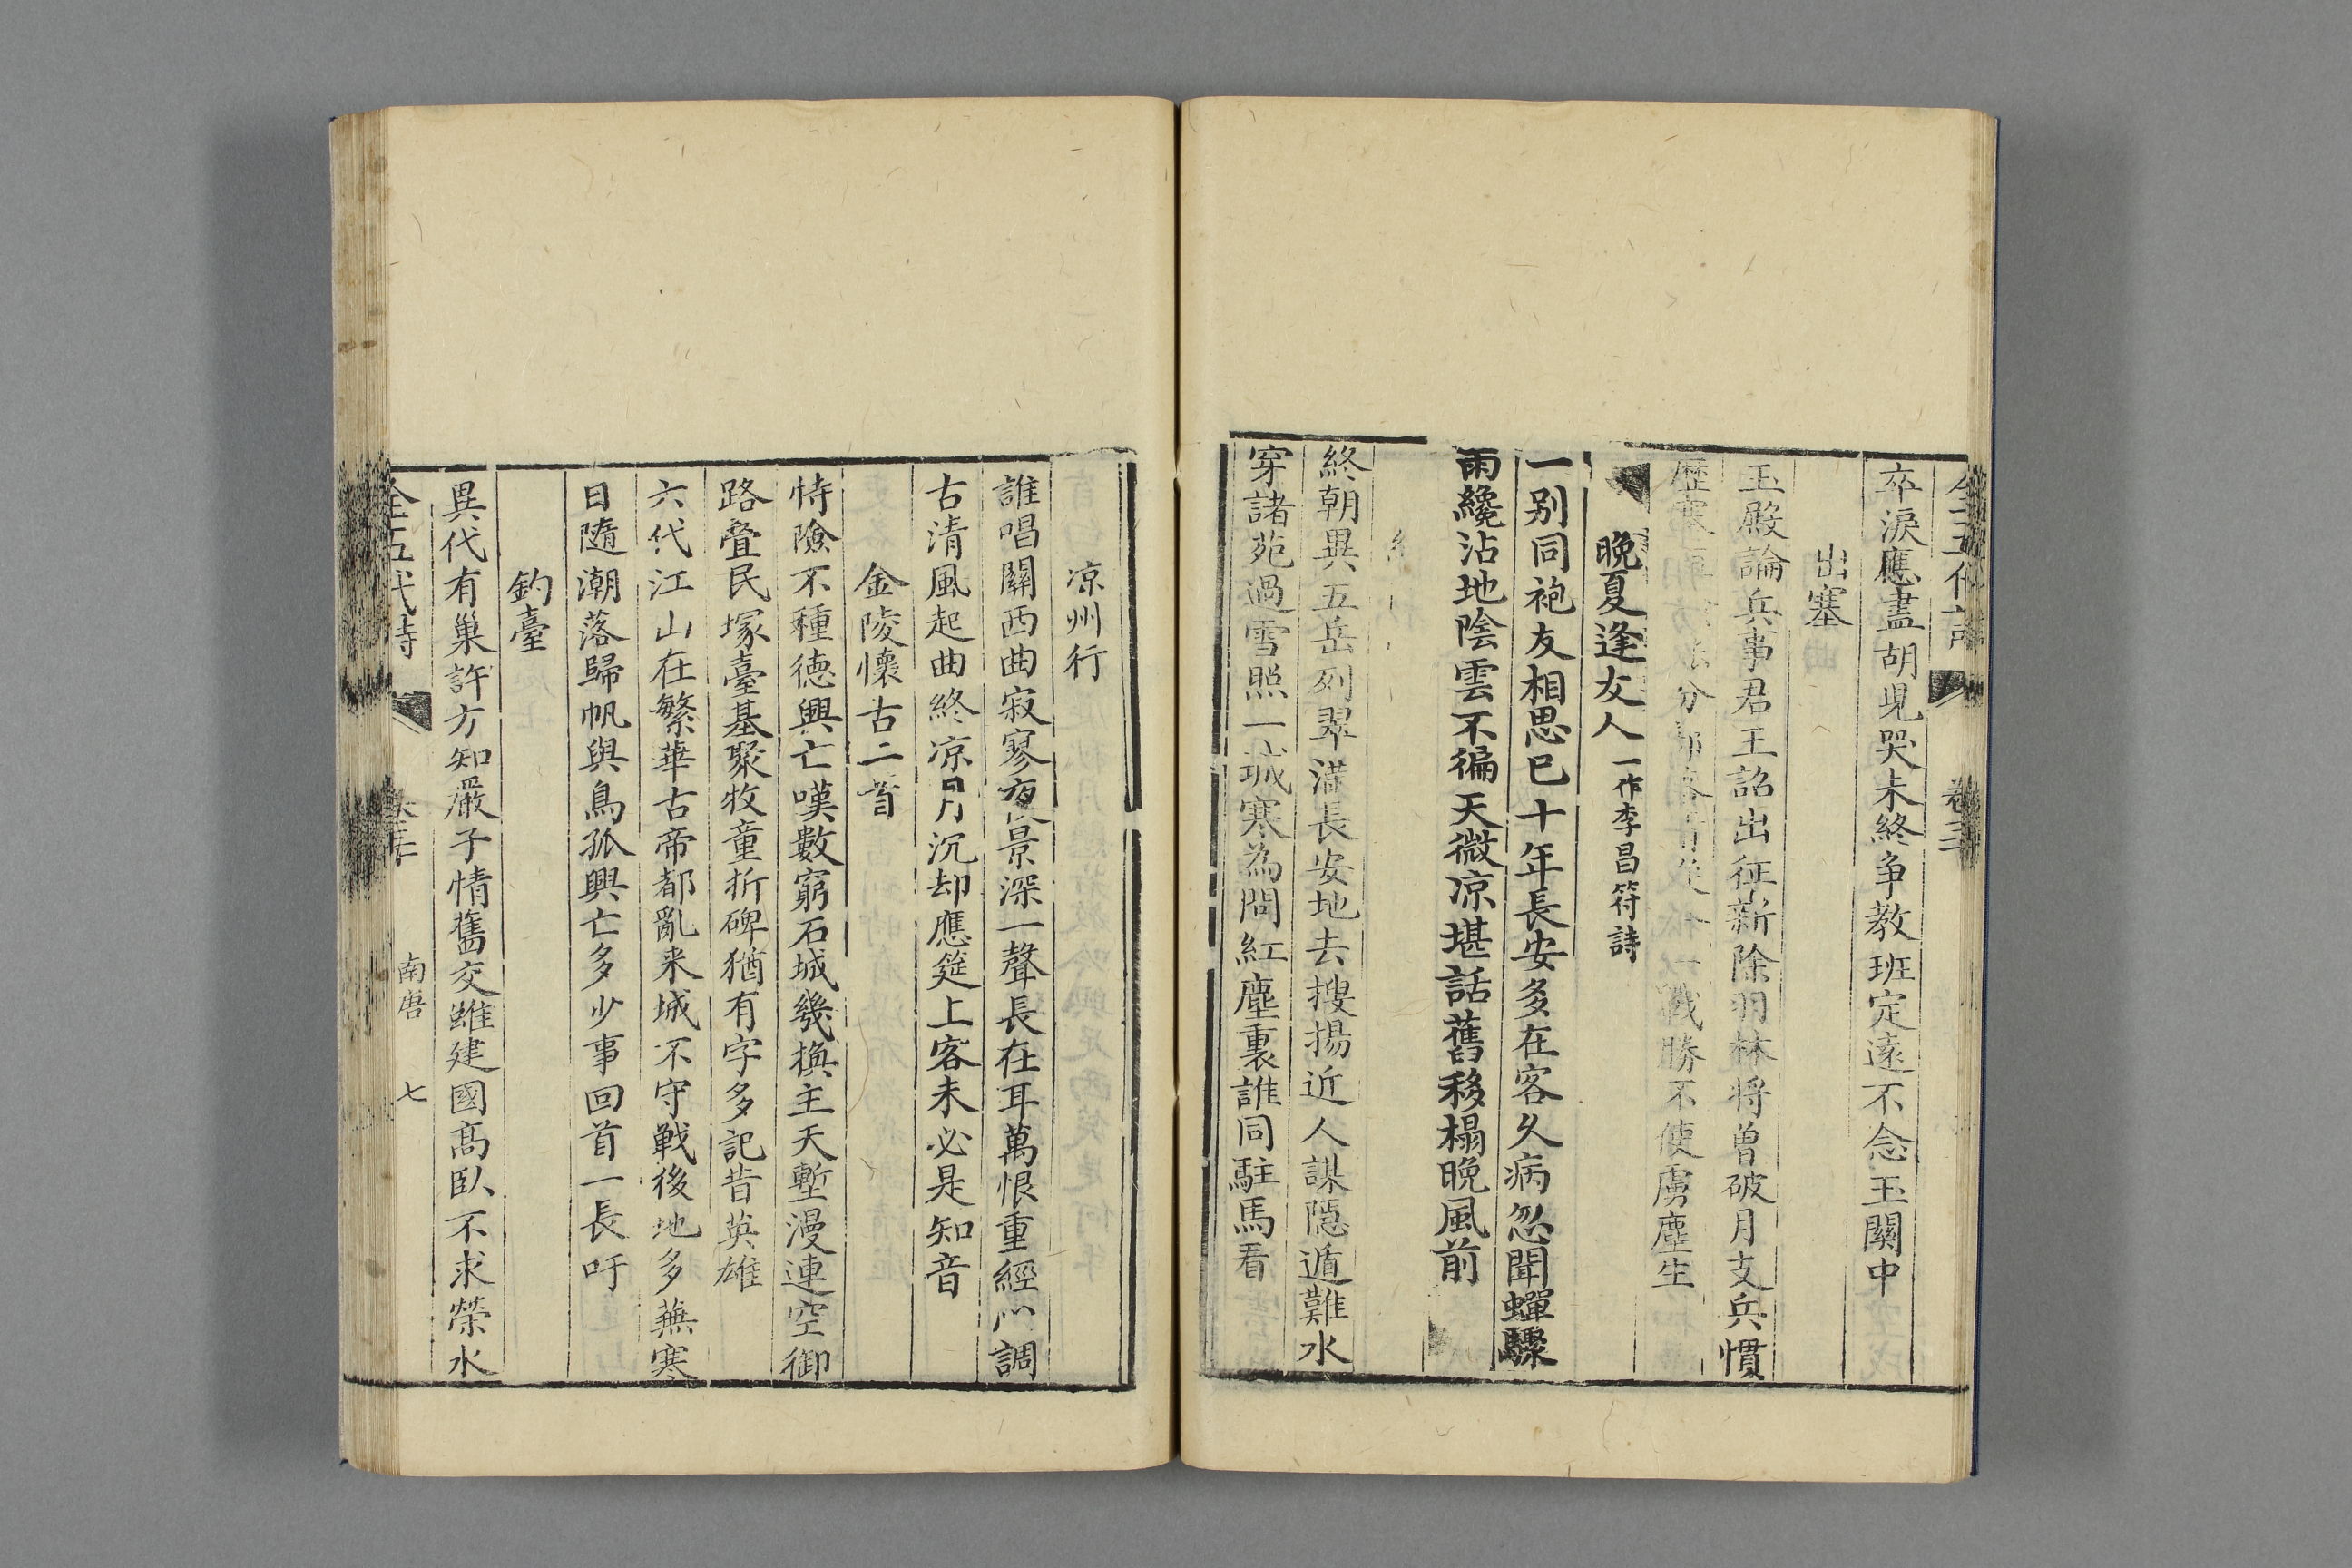 卒淚應盡胡兒哭未終争教班定遠不念玉關中
出塞
玉殿論兵事君王詔出征新除羽林将曾破月支兵慣
歷塞垣 分部 一戰勝不使虜塵生
晩夏逢友人一作李昌符詩
一别同袍友相思已十年長安多在客久病忽聞蟬驟
雨纔沾地陰雲不徧天微凉堪話舊移榻晚風前
終
終朝異五岳列翠滿長安地去搜揚近人謀隱遁難水
穿諸苑過雪照一城寒為問紅塵裏誰同駐馬看
凉州行
誰唱關西曲寂寥夜景深一聲長在耳萬恨重經心調
古清風起曲終凉月沉却應筵上客未必是知音
金陵懷古二首
恃險不種德興亡嘆數窮石城幾換主天塹漫連空御
路叠民塚臺基聚牧童折碑猶有字多記昔英雄
六代江山在繁華古帝都亂来城不守戰後地多蕪寒
日隨潮落歸帆與鳥孤興亡多少事回首一長吁
釣臺
異代有巢許方知嚴子情舊交雖建國高臥不求榮水
全五代詩 南唐 七